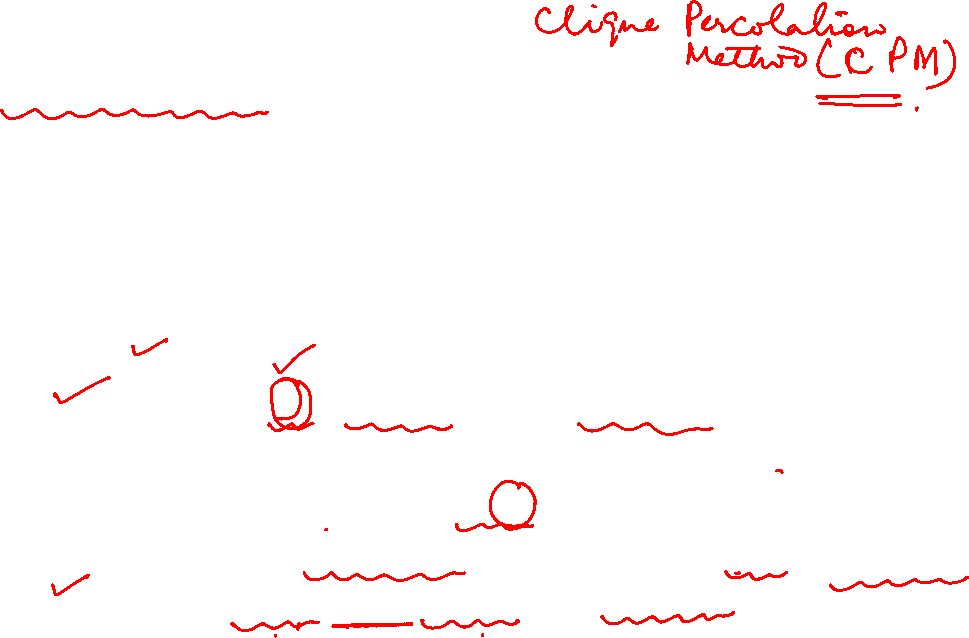 Clique Percolation
Method (CPM)